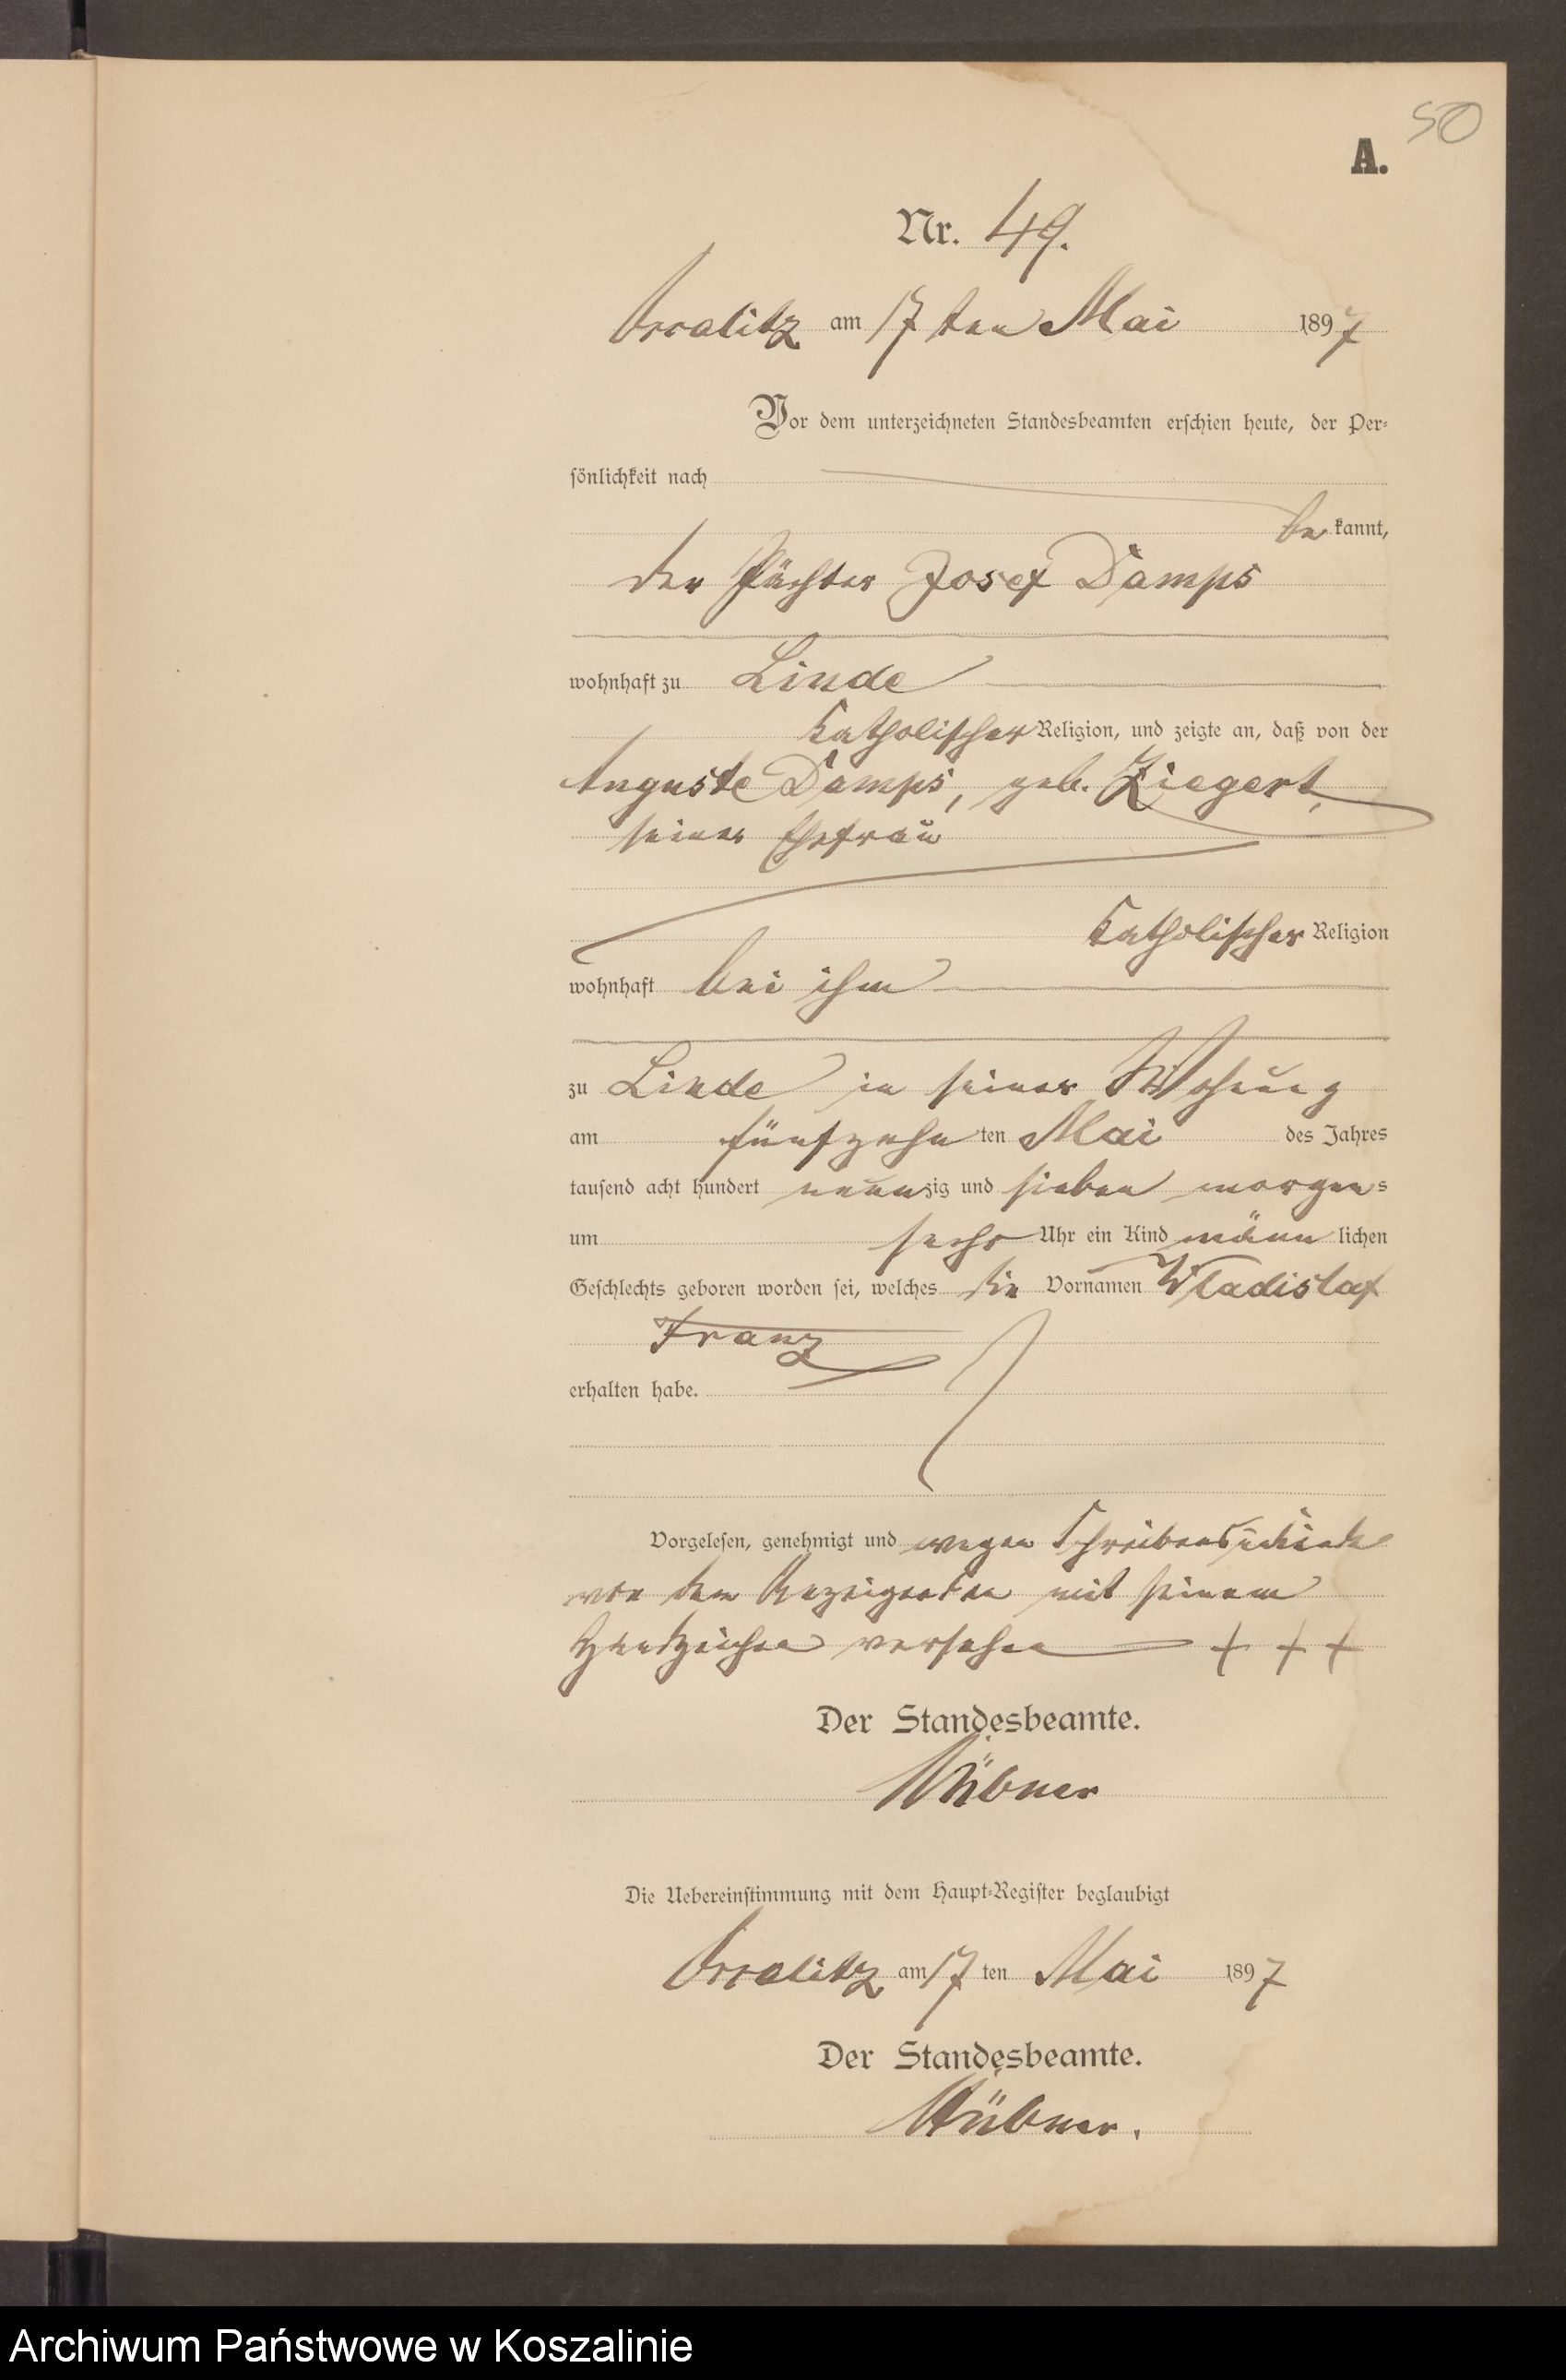 50
A.
Nr. 49.
am 17ten Mai 1897
Vor dem unterzeichneten Standesbeamten erschien heute, der Per-
sönlichkeit nach
bekannt,
der Pächter Josef Damps
wohnhaft zu Linde
katholischer Religion, und zeigte an, daß von der
Auguste Damps, geb. Ziegert,
seiner Ehefrau
katholischer Religion
wohnhaft bei ihm
zu Linde in seiner Wohnung
am fünfzehn ten Mai des Jahres
tausend acht hundert neunzig und sieben morgens
um sechs Uhr ein Kind männlichen
Geschlechts geboren worden sei, welches die Vornamen Wladislaf
Franz
erhalten habe.
Vorgelesen, genehmigt und wegen Schreibens
von dem Anzeigenden mit seinem
Handzeichen versehen + + +
Der Standesbeamte.
Die Uebereinstimmung mit dem Haupt-Register beglaubigt
am 17 ten Mai 1897
Der Standesbeamte.
Archiwum Państwowe w Koszalinie